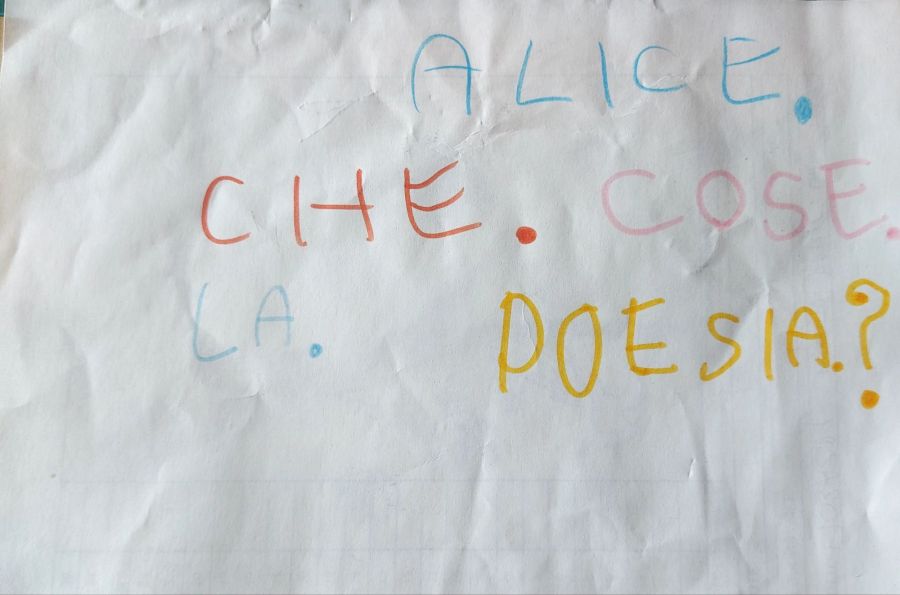 ALICE.
CHE. COSE.
LA. POESIA.?